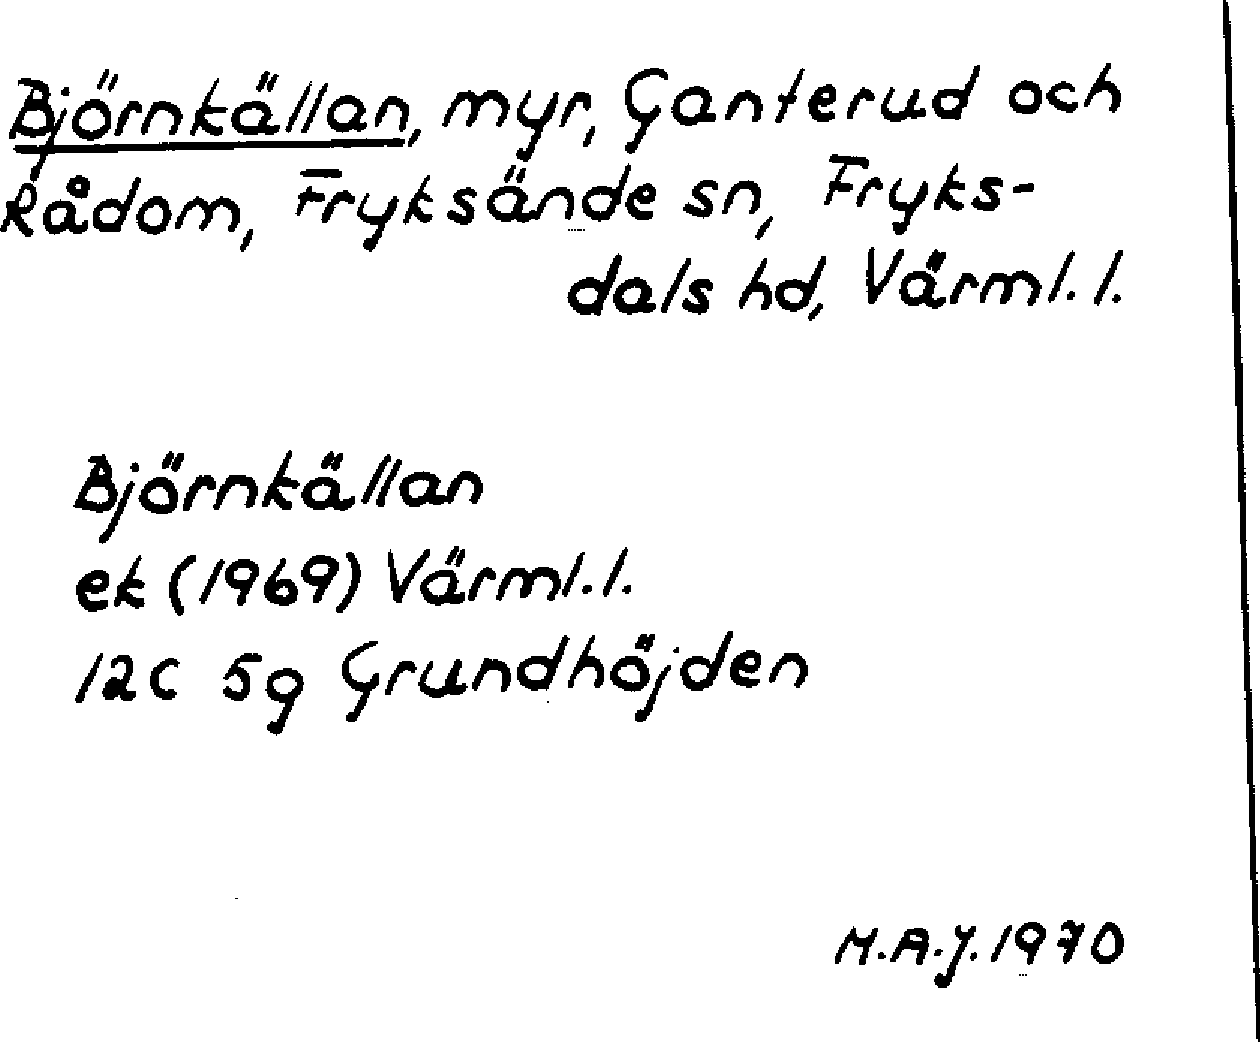 Björnkällan, myr, Ganterud och
Rådom, Fryksände sn, Fryks-
dals hd, Värml. l.
Björnkällan
ek (1969) Värml. l.
12C 5g Grundhöjden
M.A.J. 1970